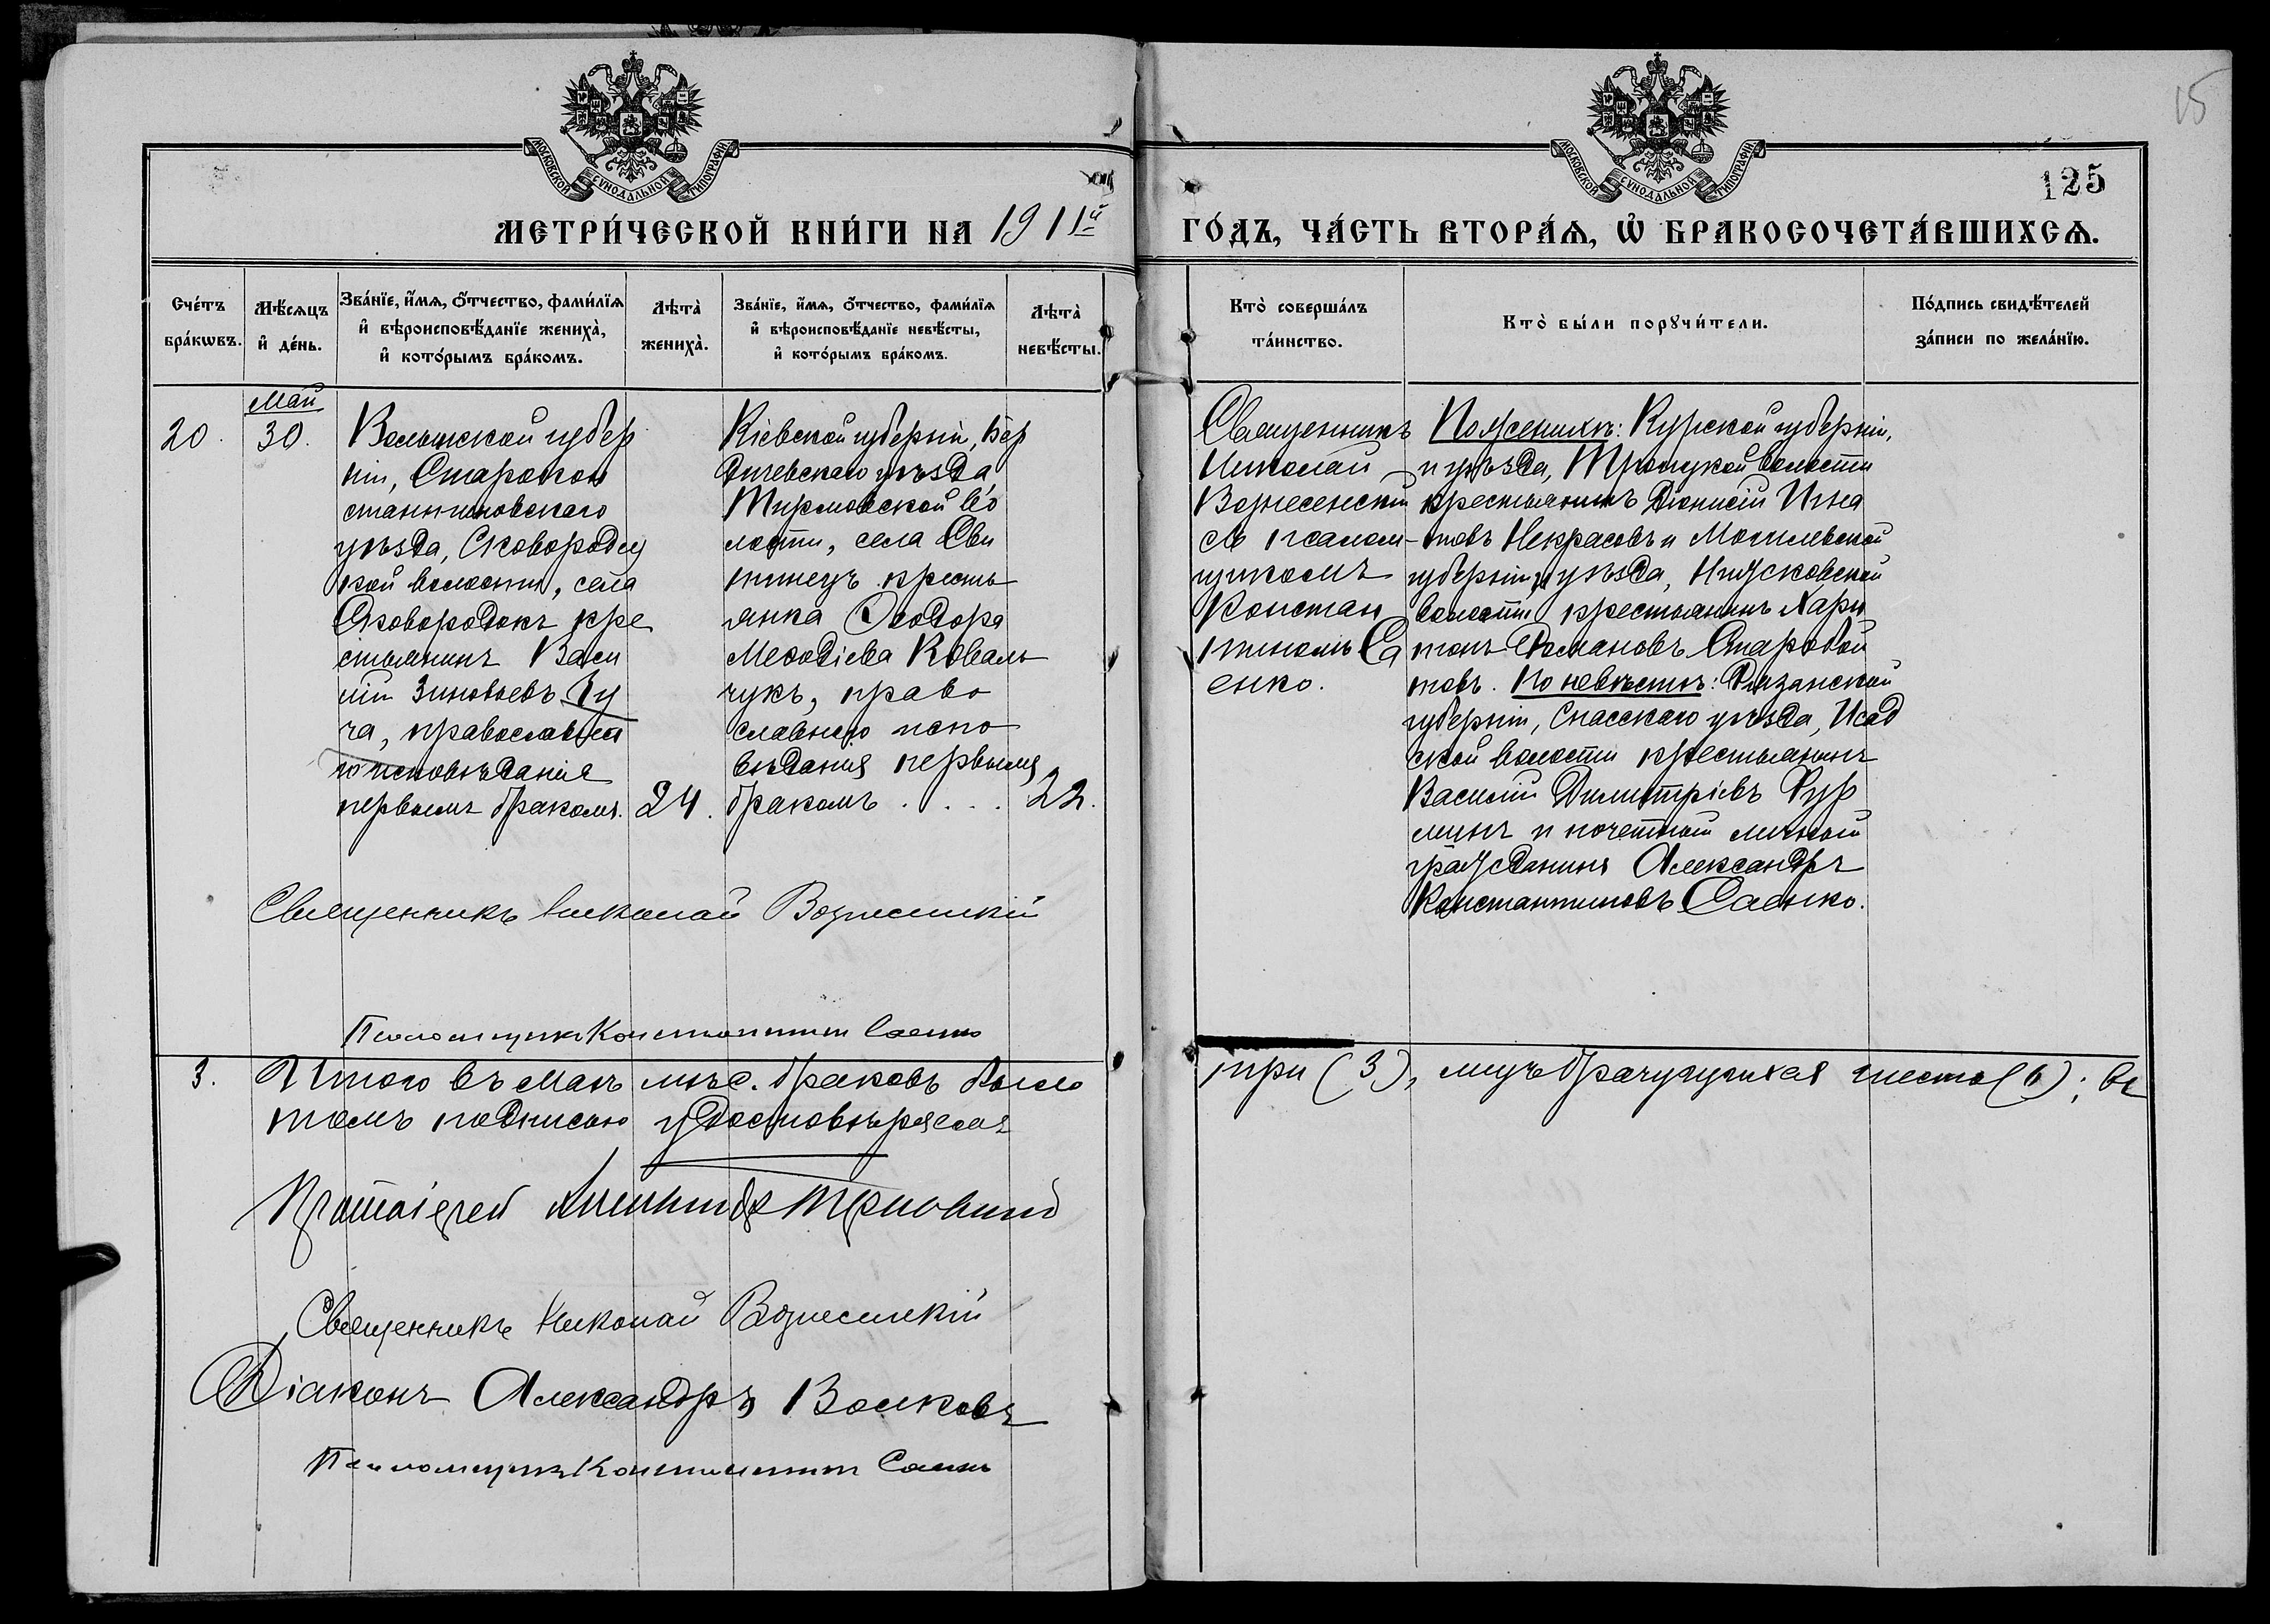 15
МОСКОВСКОЙ СѴНОДАЛЬНОЙ ТИПОГРАФІИ
МОСКОВСКОЙ СѴНОДАЛЬНОЙ ТИПОГРАФІИ
125
МЕТРИ́ЧЕСКОЙ КНИ́ГИ НА 1911й
ГО́ДЪ, ЧА́СТЬ ВТОРА́Ѧ, Ѡ҆ БРАКОСОЧЕТА́ВШИХСѦ.
Сче́тъ
бра́кѡвъ.
Мѣ́сѧцъ
и҆ де́нь.
Зва́нїе, и҆́мѧ, ѻ҆́тчество, фами́лїѧ
и҆ вѣроисповѣ́данїе жениха̀,
и҆ кото́рымъ бра́комъ.
Лѣта̀
жениха̀.
Зва́нїе, и҆́мѧ, ѻ҆́тчество, фами́лїѧ
и҆ вѣроисповѣ́данїе невѣ́сты,
и҆ кото́рымъ бра́комъ.
Лѣта̀
невѣ́сты.
Кто̀ соверша́лъ
та́инство.
Кто̀ бы́ли порꙋчи́тели.
По́дпись свидѣ́телей
за́писи по жела́нїю.
20.
Май
30.
Волынской губер
ніи, Старокон
стантиновскаго
уѣзда, Сковородец
кой волости, села
Сковородокъ кре
стьянинъ Васи
лій Зиновьевъ Зу
ча, православна
го исповѣданія
первымъ бракомъ.
24.
Кіевской губерніи, Бер
дичевскаго уѣзда,
Тирловской во
лости, села Сви
тинецъ кресть
янка Ѳеодора
Меѳодіева Коваль
чукъ, право
славнаго испо
вѣданія первымъ
бракомъ . . . .
22.
Священникъ
Николай
Вознесенскій
съ псалом-
щикомъ
Констан
тиномъ Са
енко.
По женихѣ: Курской губерніи,
и уѣзда, Троицкой волости
крестьянинъ Діонисій Игна
товъ Некрасовъ и Могилевской
губерніи и уѣзда,
волости крестьянинъ Хари
тонъ Романовъ Старовой
товъ. По невѣстѣ: Рязанской
губерніи, Спасскаго уѣзда, Исад
ской волости крестьянинъ
Василій Димитріевъ Фур
минъ и почетный личный
гражданинъ Александръ
Константиновъ Саенко.
Священникъ Николай Вознесенскій
Псаломщикъ Константинъ Саенко
3.
Итого въ маѣ мѣс. браковъ было
три (3), лицъ брачущихся шесть (6); въ
томъ подписью удостовѣряемъ
Протоіерей
Священникъ Николай Вознесенскій
Діаконъ Александръ Волковъ
Псаломщикъ Константинъ Саенко